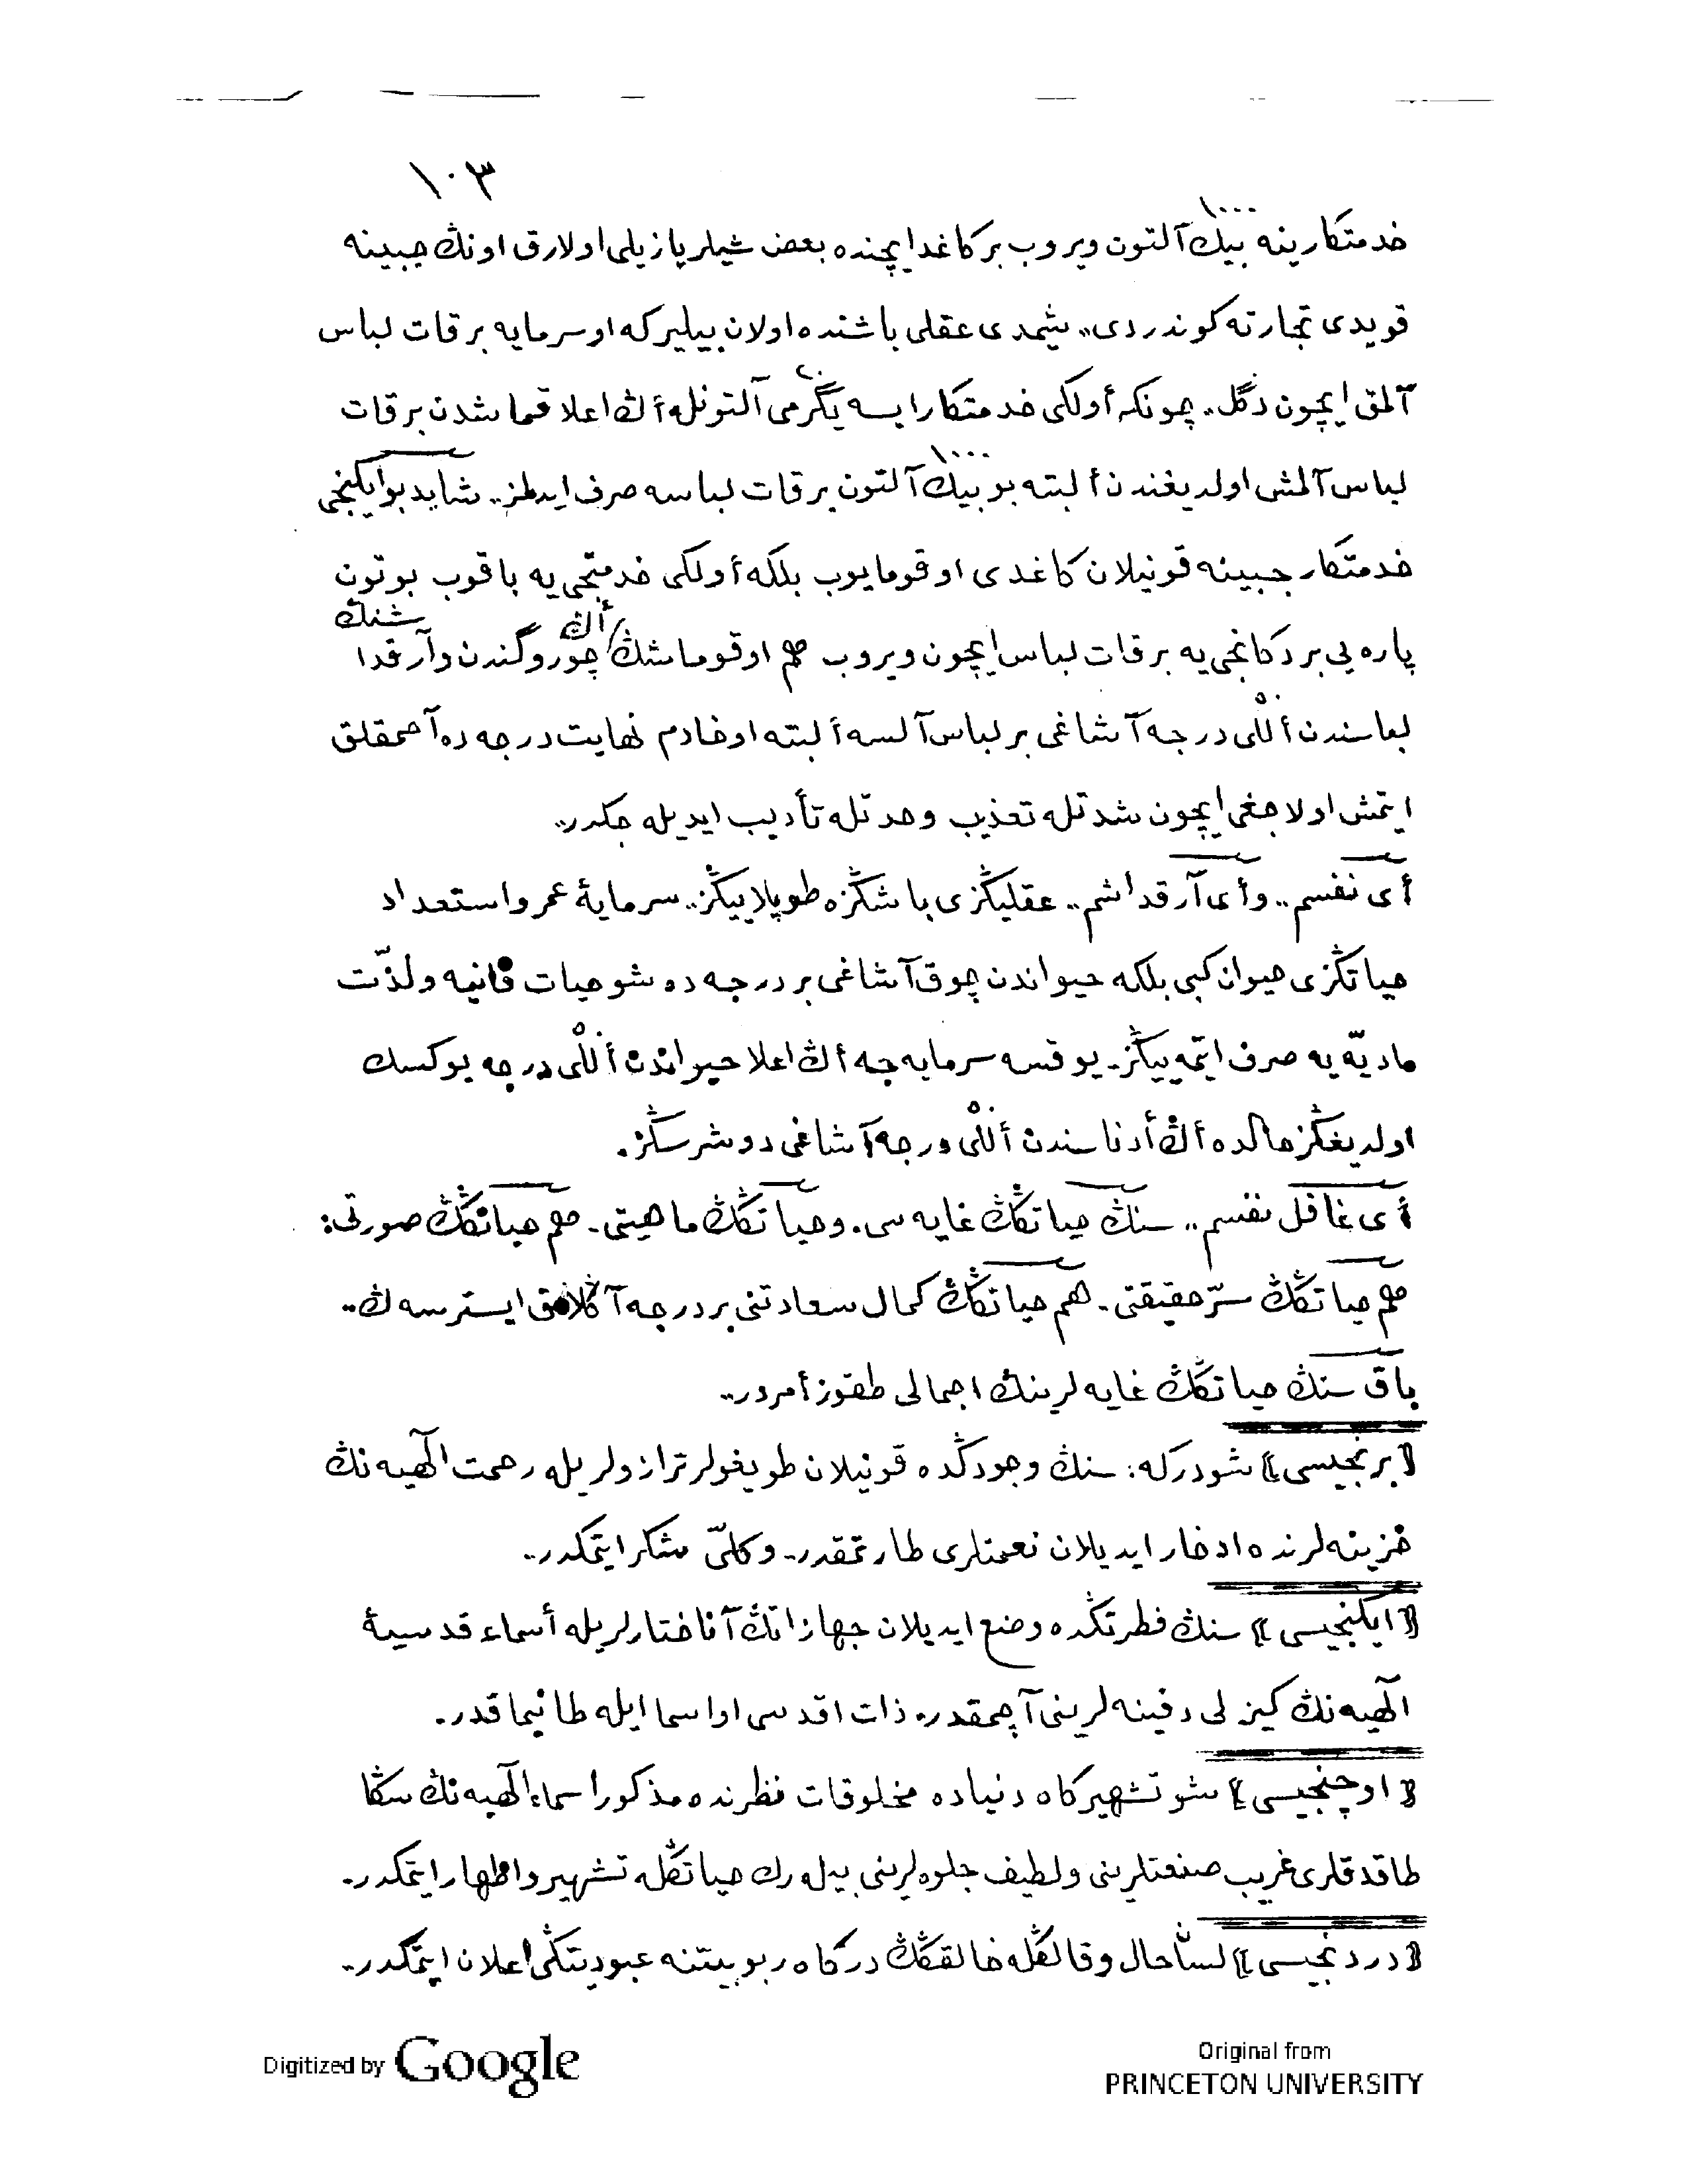 ١٠٣
١٠٠٠
خدمتكارينه بيڭ آلتون ويروب بر كاغد ايچنده بعض شيلر يازيلى اولارق اونڭ جبينه
قويدى تجارته كوندردى،، شيمدى عقلى باشنده اولان بيليركه او سرمايه بر قات لباس
٢٠
آلمق ايچون دگل،، چونكه أولكى خدمتكار ايسه يگرمى آلتونله أڭ اعلا قماشدن بر قات
١٠٠٠
لباس آلمش اولديغندن ألبته بو بيڭ آلتون بر قات لباسه صرف ايدلمز،، شايد بو ايكنجى
خدمتكار جبينه قونيلان كاغدى اوقومايوب بلكه أولكى خدمتجى يه باقوب بوتون
پاره يى بر دكانجى يه بر قات لباس ايچون ويروب هم او قوماشڭ أڭ چوروگندن وآرقداشنڭ
٥٠
لباسندن أللى درجه آشاغى بر لباس آلسه ألبته او خادم نهايت درجه ده آحمقلق
ايتمش اولاجغى ايچون شدتله تعذيب وحدتله تأديب ايديله جكدر،،
أى نفسم،، وأى آرقداشم،، عقليڭزى باشڭزه طوپلاييڭز،، سرمايۀ عمر واستعداد
حياتڭزى حيوان كبى بلكه حيواندن چوق آشاغى بر درجه ده شو حيات فانيه ولذّت
٥٠
ماديّه يه صرف ايتمه ييڭز. يوقسه سرمايه جه أڭ اعلا حيواندن أللى درجه يوكسك
٥٠
اولديغڭز حالده أڭ أدناسندن أللى درجه آشاغى دوشرسڭز.
أى غافل نفسم،، سنڭ حياتڭڭ غايه سى. وحياتڭڭ ماهيتى. هم حياتڭڭ صورتى:
هم حياتڭڭ سرّ حقيقتى. هم حياتڭڭ كمال سعادتنى بر درجه آڭلامق ايسترسه ڭ..
باق سنڭ حياتڭڭ غايه لرينڭ اجمالى طقوز أمردر..
﴿برنجيسى﴾ شودركه: سنڭ وجودڭده قونيلان طويغولر ترازولريله رحمت الٓهيه نڭ
خزينه لرنده ادخار ايديلان نعمتلرى طارتمقدر.. وكلىّ شكر ايتمكدر..
﴿ايكنجيسى﴾ سنڭ فطرتڭده وضع ايديلان جهازاتڭ آناختارلريله أسماء قدسيۀ
الٓهيه نڭ كيزلى دفينه لرينى آچمقدر. ذات اقدسى او اسما ايله طانيماقدر.
﴿اوچنجيسى﴾ شو تشهيركاه دنياده مخلوقات نظرنده مذكور اسماء الٓهيه نڭ سڭا
طاقدقلرى غريب صنعتلرينى ولطيف جلوه لرينى بيله رك حياتڭله تشهير واظهار ايتمكدر.
﴿دردنجيسى﴾ لسان حال وقالڭله خالقڭڭ دركاه ربوبيتنه عبوديتڭى اعلان ايتمكدر.
Digitized by Google
Original from
PRINCETON UNIVERSITY